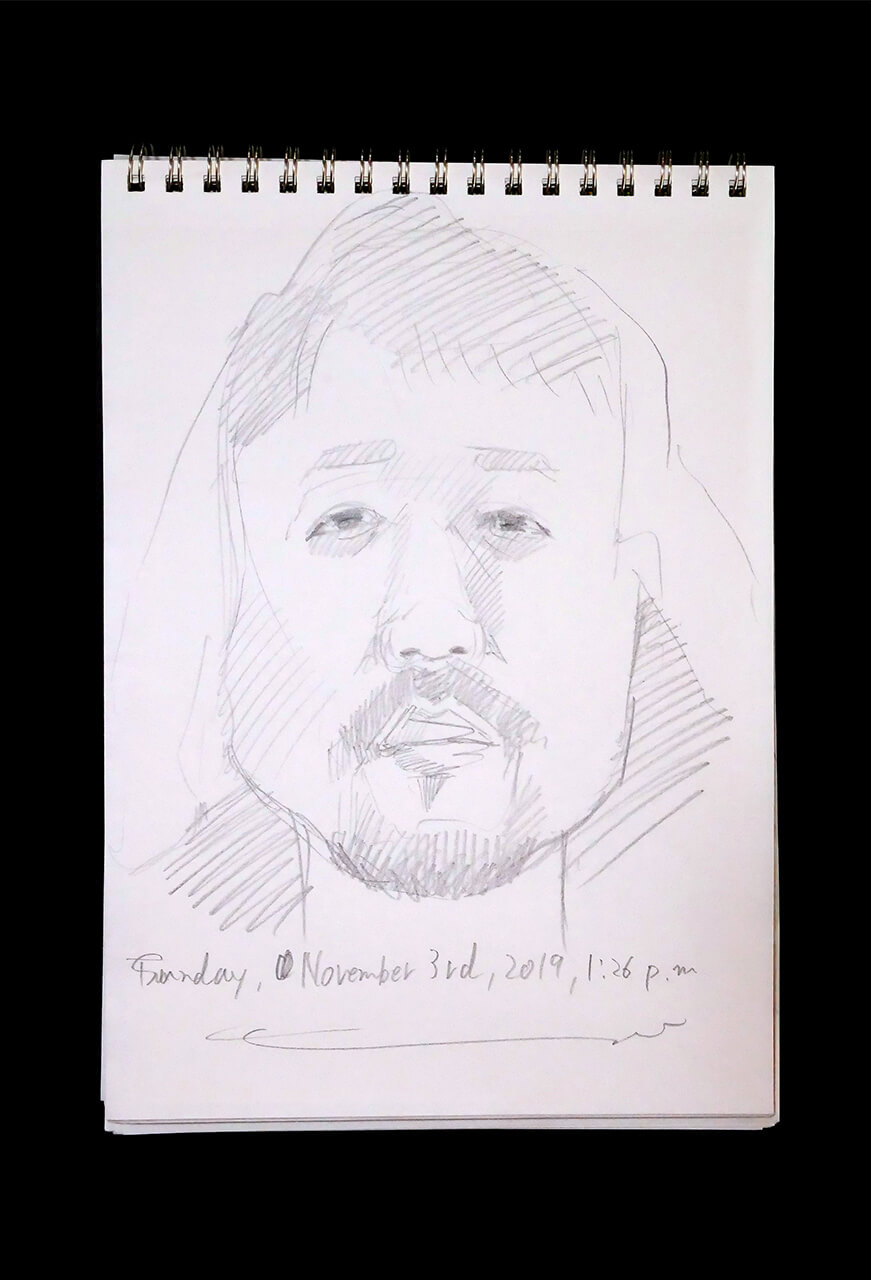 Sunday, November 3rd, 2019, 1:26 p.m